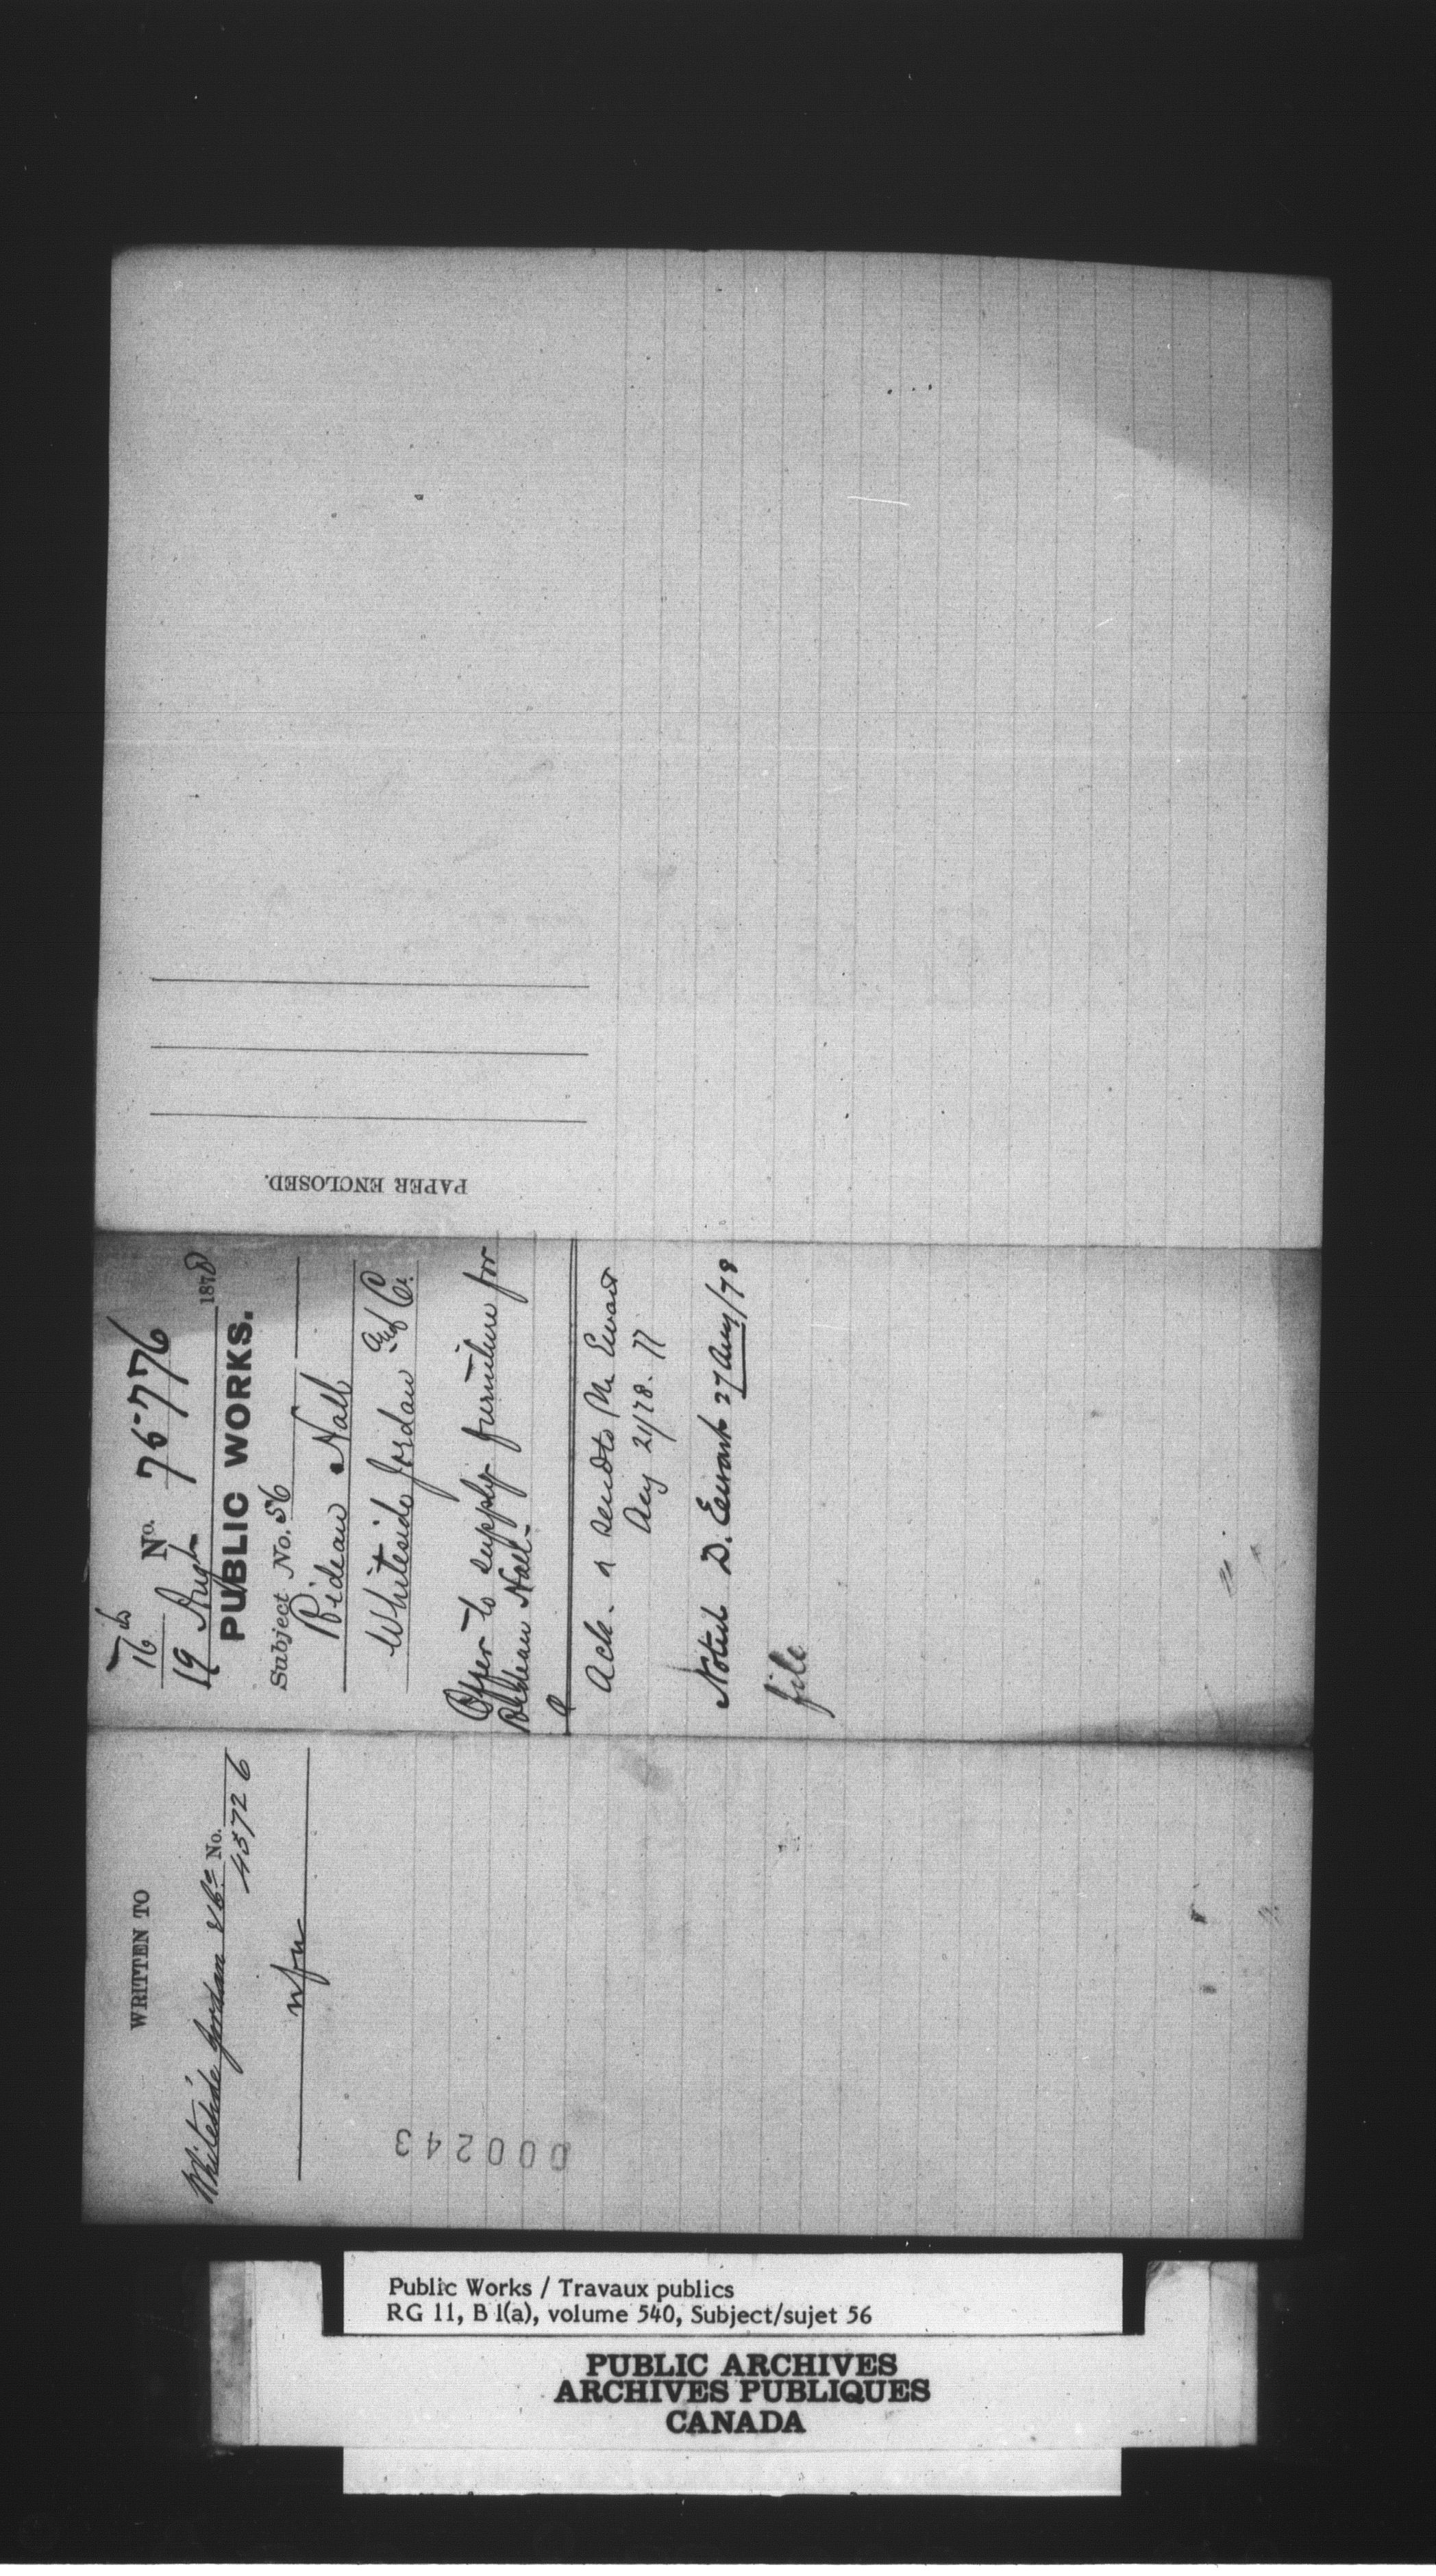 PAPER ENCLOSED.
No. 75776
19 Augt 1878
PUBLIC WORKS.
Subject No. 56
Rideau Hall
Whiteside Jordan and Co.
Offer to supply furniture for
Rideau Hall-
Ack. & send to Mr Ewart
Aug 21/78.
Noted D. Ewart 27 Aug/78
file
WRITTEN TO
Whiteside Jordan & Co. No.
43726
000243
Public Works / Travaux publics
RG 11, B 1(a), volume 540, Subject/sujet 56
PUBLIC ARCHIVES
ARCHIVES PUBLIQUES
CANADA